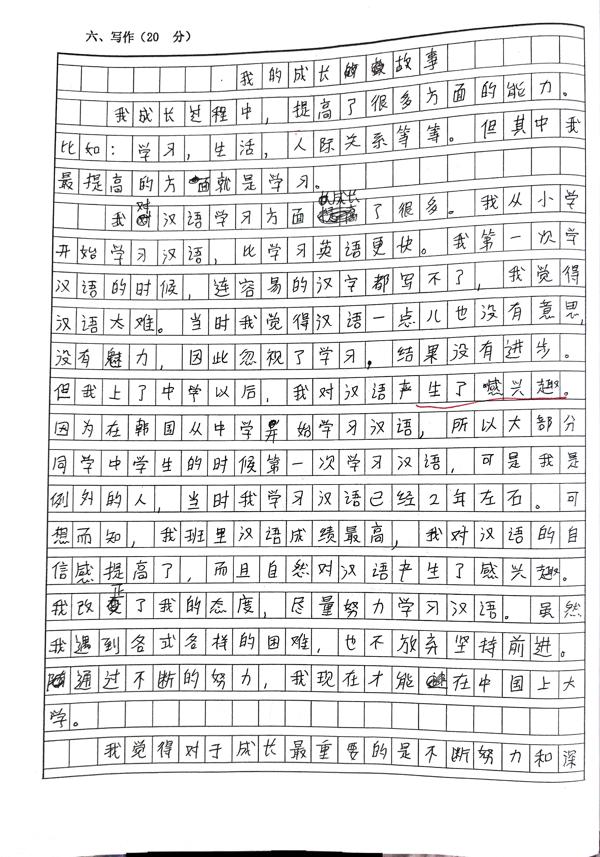 六、写作(20 分)
我的成长的故事
我成长过程中,提高了很多方面的能力。
比如:学习,生活,人际关系等等。但其中我
最提高的方面就是学习。
我对汉语学习方面成长了很多。我从小学
开始学习汉语,比学习英语更快。我第一次学
汉语的时候,连容易的汉字都写不了,我觉得
汉语太难。当时我觉得汉语一点儿也没有意思,
没有魅力,因此忽视了学习,结果没有进步。
但我上了中学以后,我对汉语产生了感兴趣。
因为在韩国从中学开始学习汉语,所以大部分
同学中学生的时候第一次学习汉语,可是我是
例外的人,当时我学习汉语已经2年左右。可
想而知,我班里汉语成绩最高,我对汉语的自
信感提高了,而且自然对汉语产生了感兴趣。
我改正了我的态度,尽量努力学习汉语。虽然
我遇到各式各样的困难,也不放弃坚持前进。
通过不断的努力,我现在才能在中国上大
学。
我觉得对于成长最重要的是不断努力和深